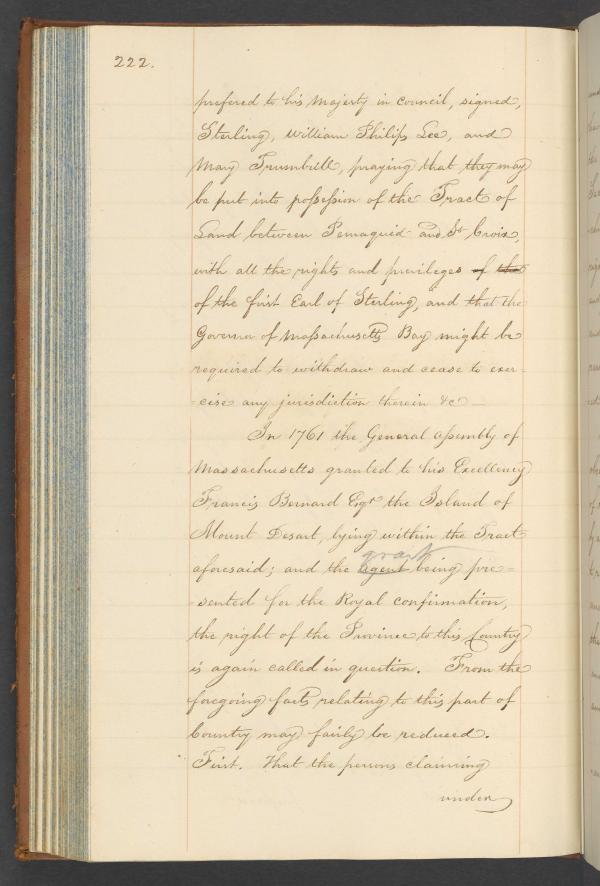 222.
prefered to his Majesty in Council, signed,
Sterling, William Philips Lee, and
Mary Trumbull, praying that they may
be put into possession of the Tract of
Land between Pemaquid and St Croix,
with all the rights and privileges of that
of the first Earl of Sterling, and that the
Governor of Massachusetts Bay might be
required to withdraw and cease to exer-
-cise any jurisdiction therein &c —
In 1761 the General Assembly of
Massachusetts granted to his Excellency
Francis Bernard Esqr the Island of
Mount Desart, lying within the Tract
grant
aforesaid; and the agent being pre-
-sented for the Royal confirmation,
the right of the Province to this Country
is again called in question. From the
foregoing facts relating to this part of
Country may fairly be reduced.
First. That the persons claiming
under